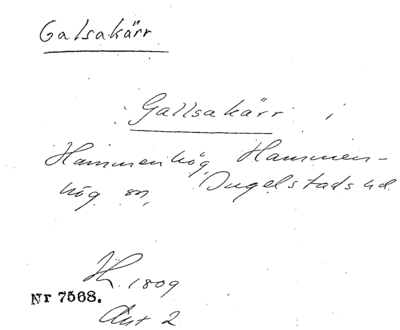 Galsakärr
Gallsakärr i
Hammenhög, Hammen-
hög sn, Ingelstads hd
1809
Nr 7568.
Akt 2